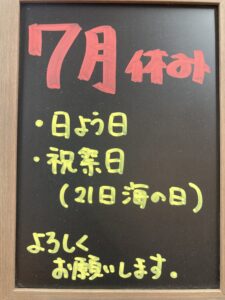 7月 休み
・日よう日
・祝祭日
(21日 海の日)
よろしく
お願いします.